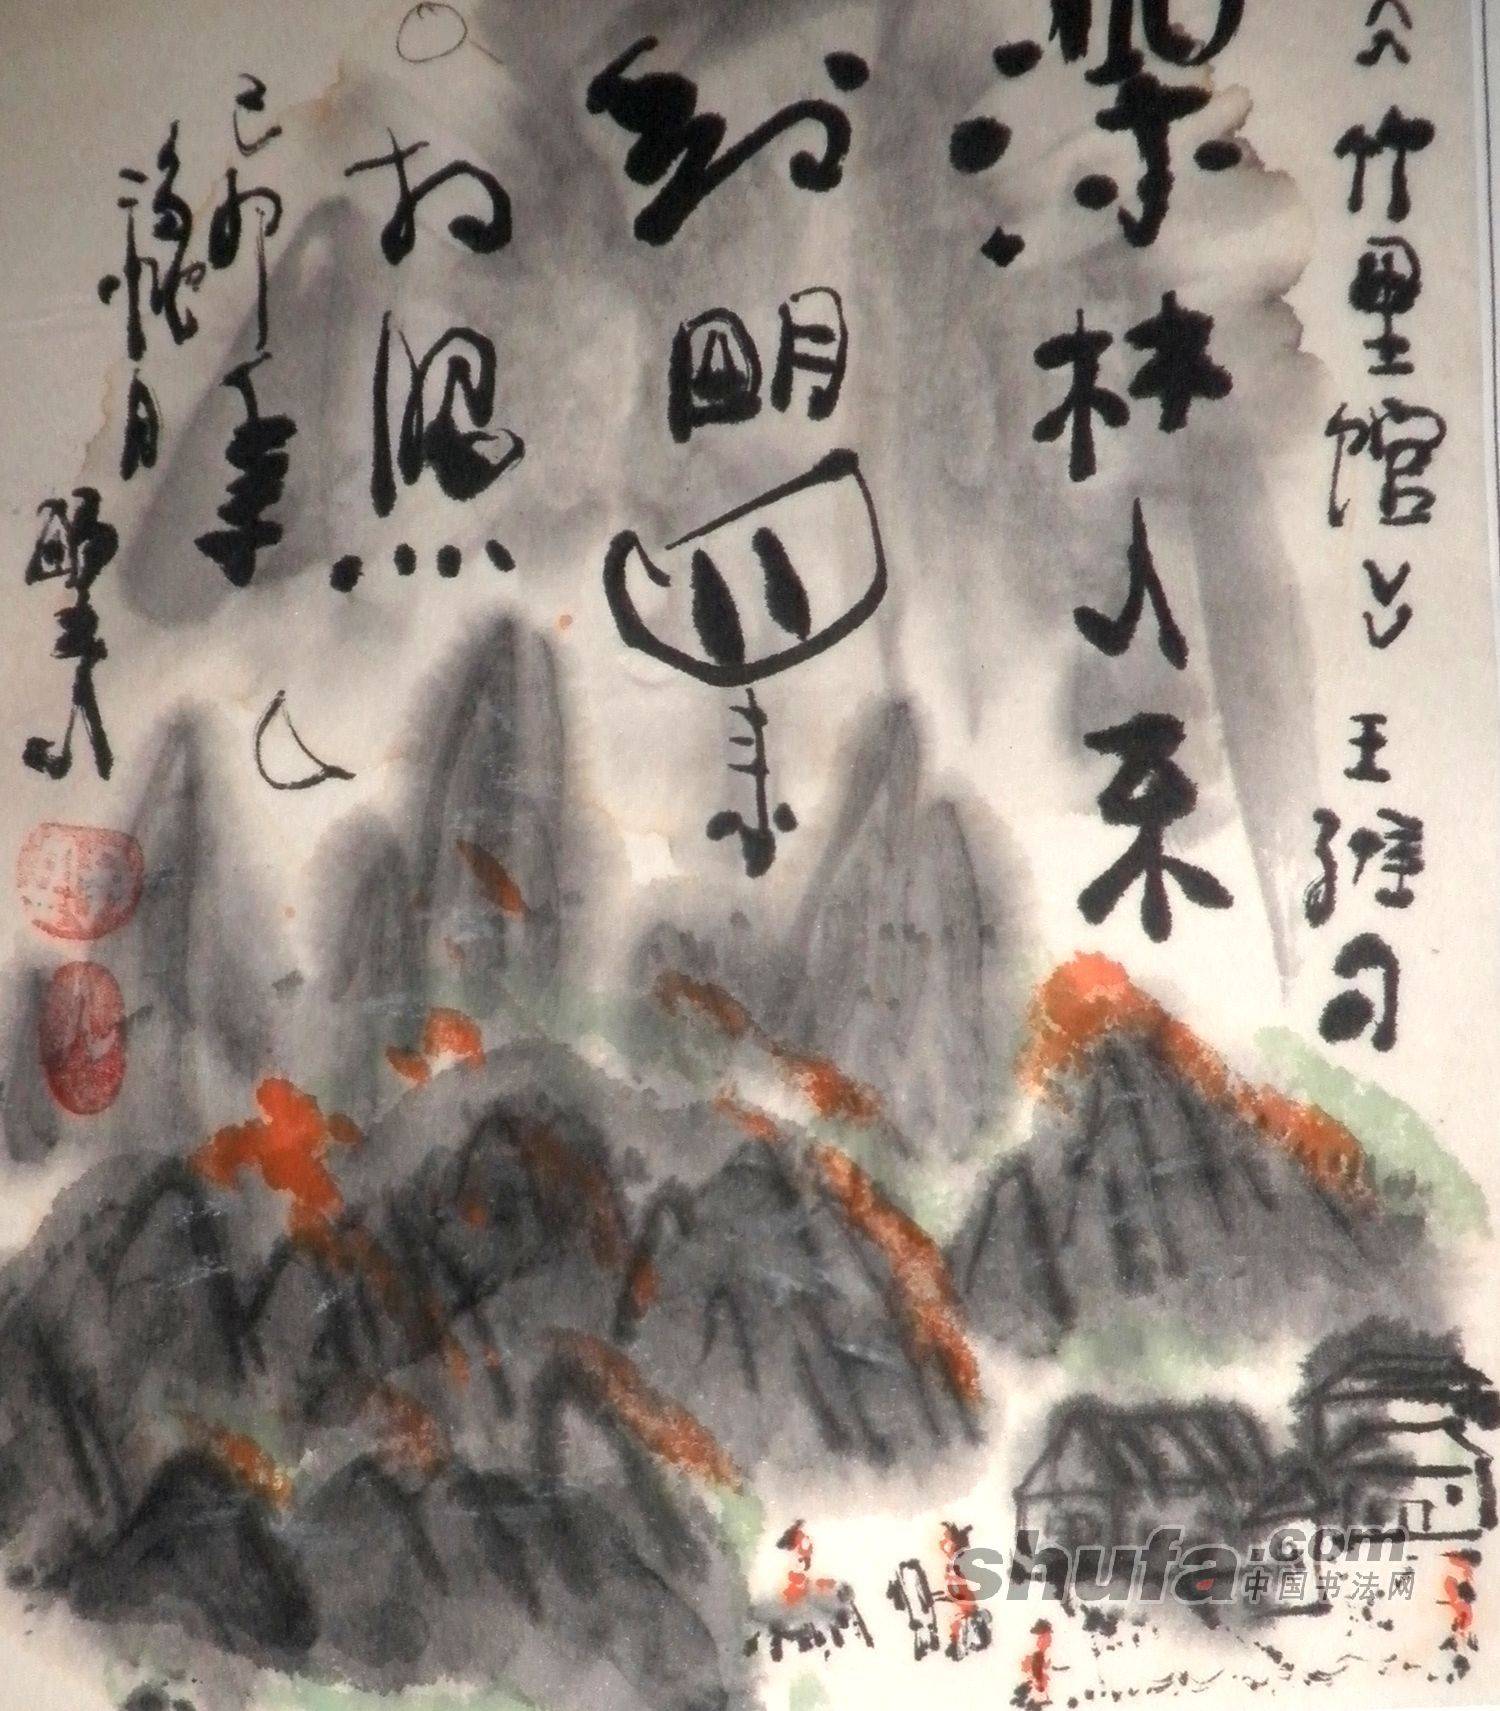 《竹里馆》 王维句
深林人不
知明月来
相照
己卯年
月
人
shufa.com
中国书法网